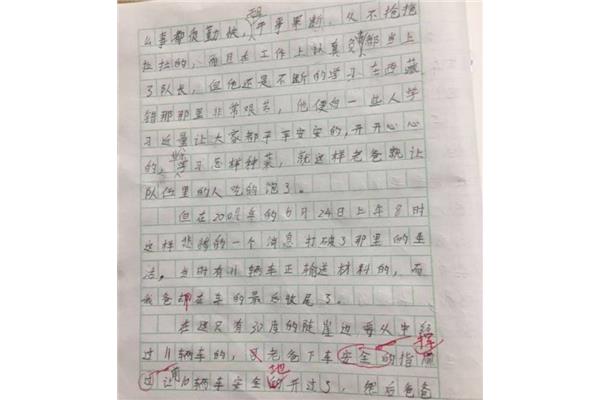 么事都很勤快，干事果断，从不拖拖
拉拉的，而且在工作上认真负责都当上
了队长，但他还是不断的学习在西藏
错那那里非常艰苦，他便向一些人学
习近量让大家都平平安安的，开开心心
的，学习怎样种菜，就这样老爸就让
队伍里的人吃的泡了。
但在200年的6月24日上午8时
这样悲的一个消息打破了那里的生
活。当时有11辆车正输送材料的，而
我爸在车的最后收尾了。
在这只有30度的陡崖边每从中经
过11辆车的，老爸下车安全的指挥
过让10辆车安全地开过了，然后爸爸